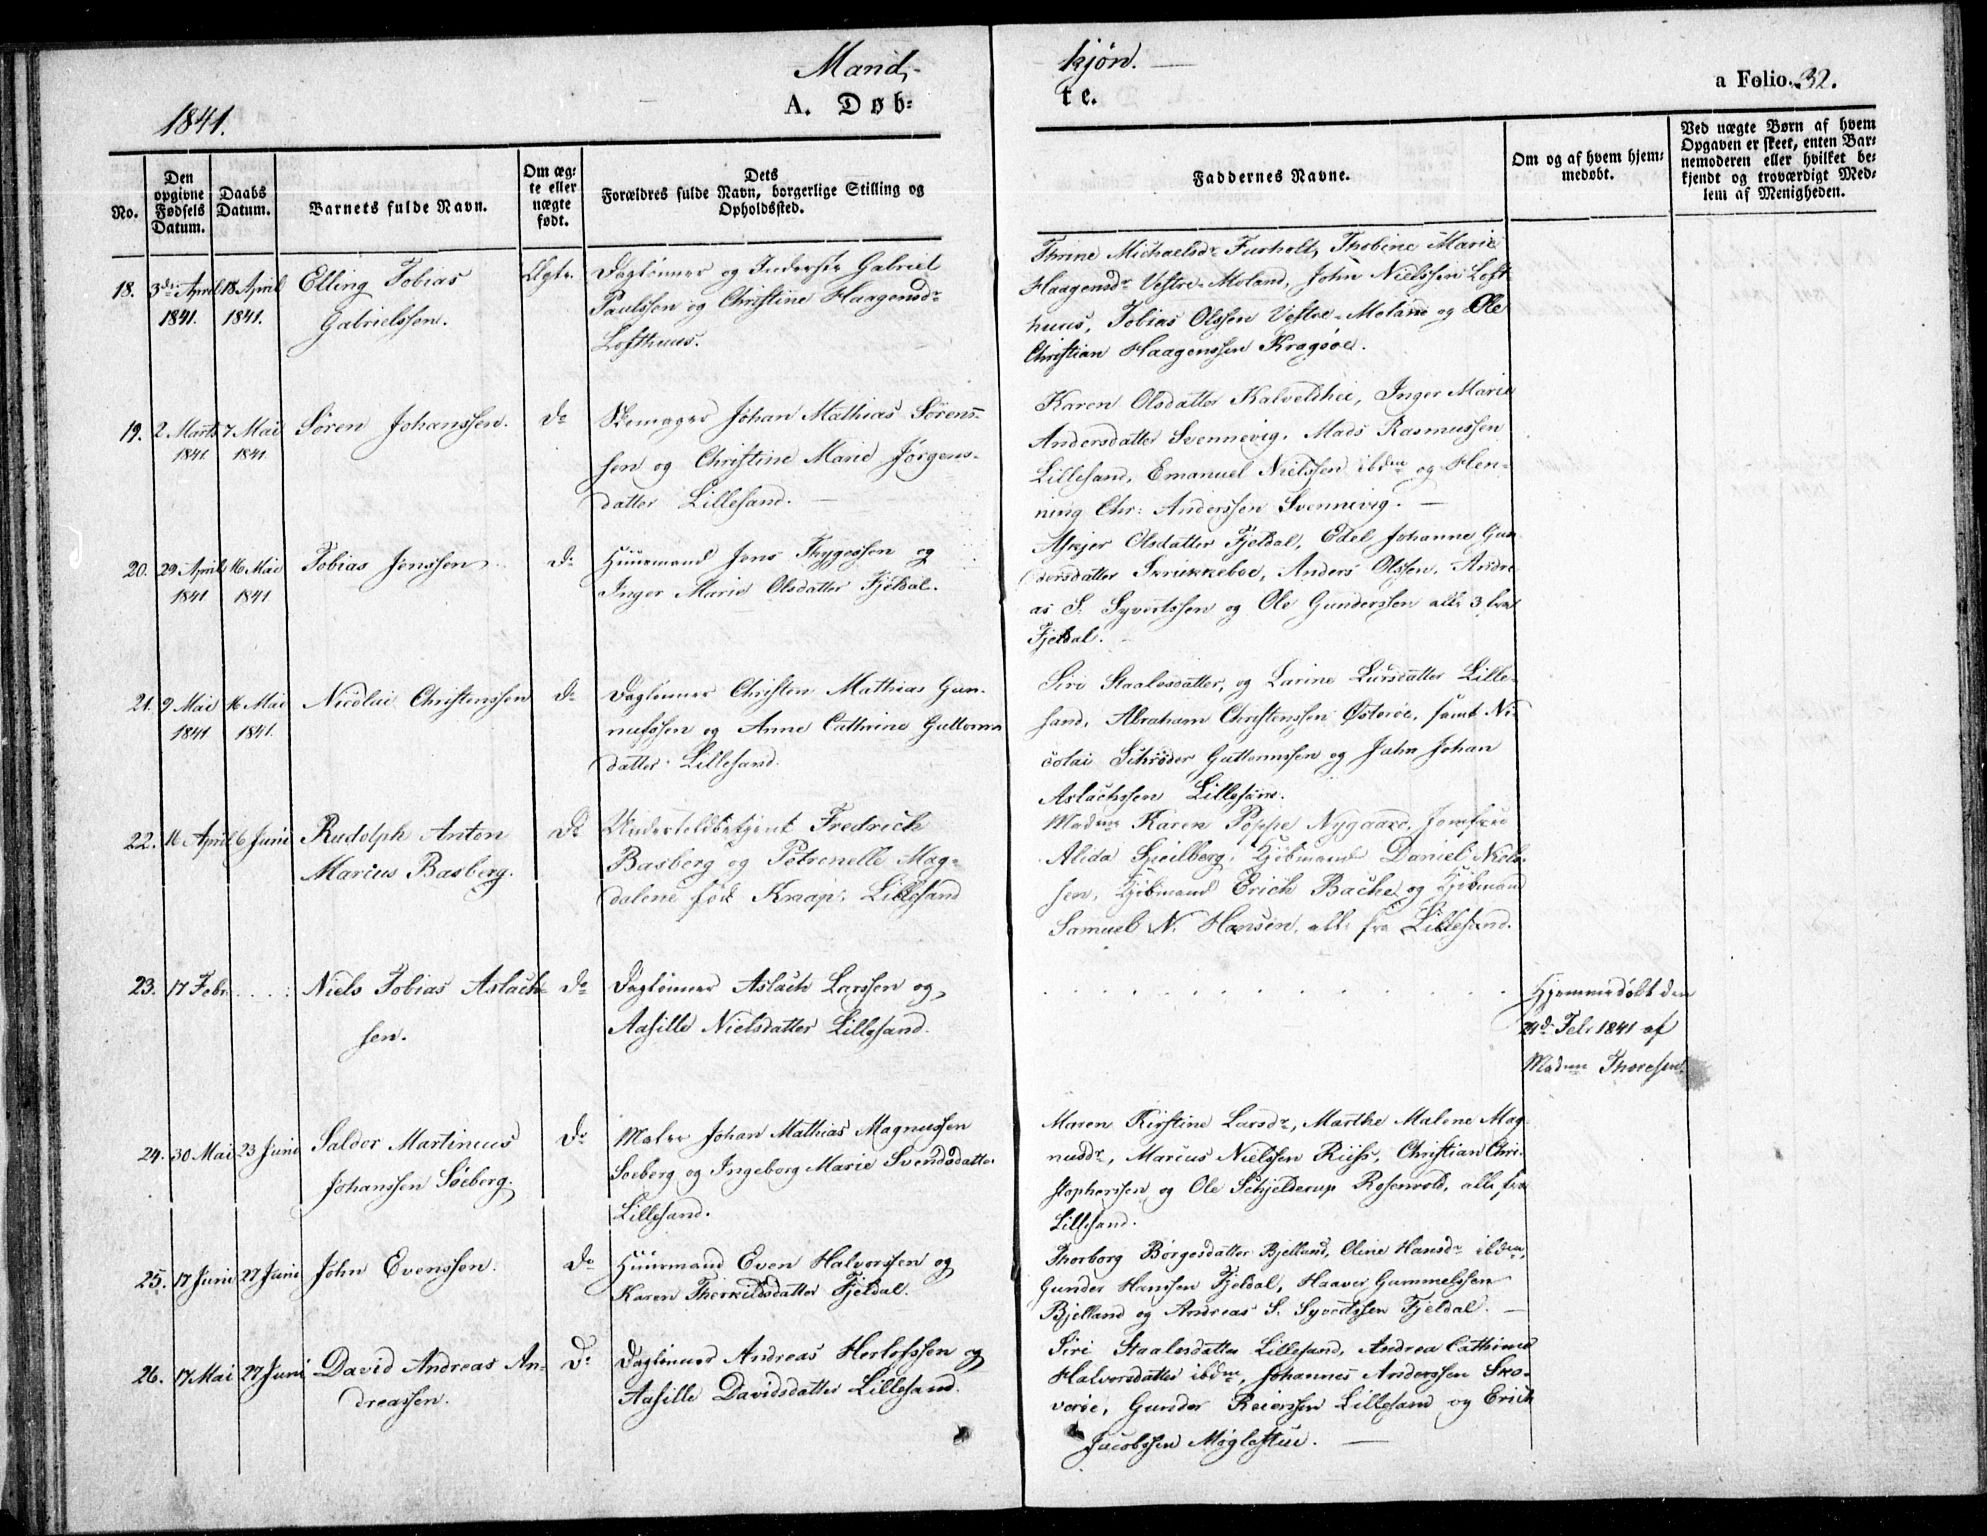 Mand-
kjøn.
1841.
A. Døb=
te.
a Folio. 32.
No.
Den opgivne Fødsels Datum.
Daabs Datum.
Barnets fulde Navn.
Om ægte eller nægte født.
Dets Forældres fulde Navn, borgerlige Stilling og Opholdssted.
Faddernes Navne.
Om og af hvem hjemmedøbt.
Ved nægte Børn af hvem
Opgaven er skeet, enten Bar=
nemoderen eller hvilket be=
kjendt og troværdigt Med=
lem af Menigheden.
18. 3de April 18 April Elling Tobias Ægte. Dagleiner og Inderste Gabriel
1841. 1841. Gabrielssen. Paulssen og Christine Haagensdr
Lofthuus.
Thrine Michaelsdr Furholt, Thobine Marie
Haagensdr Vestre-Moland, John Nielssen Loft
huus, Tobias Olssen Vestre-Moland og Ole
Christian Haagenssen Kragsøe.
19. 2. Marts 7 Mai Søren Johanssen. do Skomager Johan Mathias Sørens-
1841 1841 sen og Christine Marie Jørgens-
datter Lillesand.
Karen Olsdatter Kalveldhei, Inger Marie
Andersdatter Svennevig. Mads Rasmussen
Lillesand, Emanuel Nielssen ibdm og Hen-
ning Chr: Anderssen Svennevig.
20. 29 April 16 Mai Tobias Jenssen. do Huusmand Jens Thygessen og
1841 1841 Inger Marie Olsdatter Fjeldal.
Olsdatter Fjeldal, Edel Johanne Gun
dersdatter Skrikkeboe, Anders Olssen, Andre
as S. Syvertssen og Ole Gunderssen alle 3 fra
Fjeldal.
21. 9 Mai 16 Mai Nicolai Christenssen do Dagleiner Christen Mathias Gun-
1841 1841. nufssen og Anne Cathrine Guttorms
datter Lillesand.
Siri Staalesdatter, og Larine Larsdatter Lille-
sand, Abraham Christenssen Østerøe, samt Ni-
colai Schrøder Guttormssen og Jahn Johan
Aslachssen Lillesand.
22. 16 April 6 Juni Rudolph Anton do Undertoldbetjent Fredrich
Marius Basberg. Basberg og Petronelle Mag-
dalene fød Knap. Lillesand
Madme Karen Poppe Nygaard, Jomfrue
Alida Speilberg, Kjøbmand Daniel Niels-
sen, Kjøbmand Erich Bache og Kjøbmand
Samuel N. Hansen, alle fra Lillesand.
23. 17 Febr. Niels Tobias Aslach- do Dagleiner Aslach Larssen og
sen. Aasille Nielsdatter Lillesand.
Hjemmedøbt den
Feb 1841 af
Madme Thoresen.
24. 30 Mai 23 Juni Salder Martinius do Maler Johan Mathias Magnussen
Johanssen Søeberg. Soeberg og Ingeborg Marie Svendsdatter
Lillesand.
Maren Kirstine Larsdr, Marthe Malene Mag-
nusdr, Marius Nielssen Riiss, Christian Chri-
stopherssen og Ole Schjelderup Rosenvold, alle fra
Lillesand.
25. 17 Juni 27 Juni John Evenssen. do Huusmand Even Halvorssen og
Karen Therkildsdatter Fjeldal.
Thorborg Børgesdatter Bjelland, Oline Hansdr ibdm,
Gunder Hanssen Fjeldal, Haaver Gummelssen
Bjelland og Andreas S. Syvertssen Fjeldal.
26. 17 Mai 27 Juni David Andreas An- do Dagleiner Andreas Herlofssen og
dreassen. Aasille Davidsdatter Lillesand.
Siri Staalesdatter Lillesand, Andrea Cathrine
Halvorsdatter ibdm, Johannes Anderssen Sko-
verøe, Gunder Reierssen Lillesand og Erich
Jacobssen Møglestue.